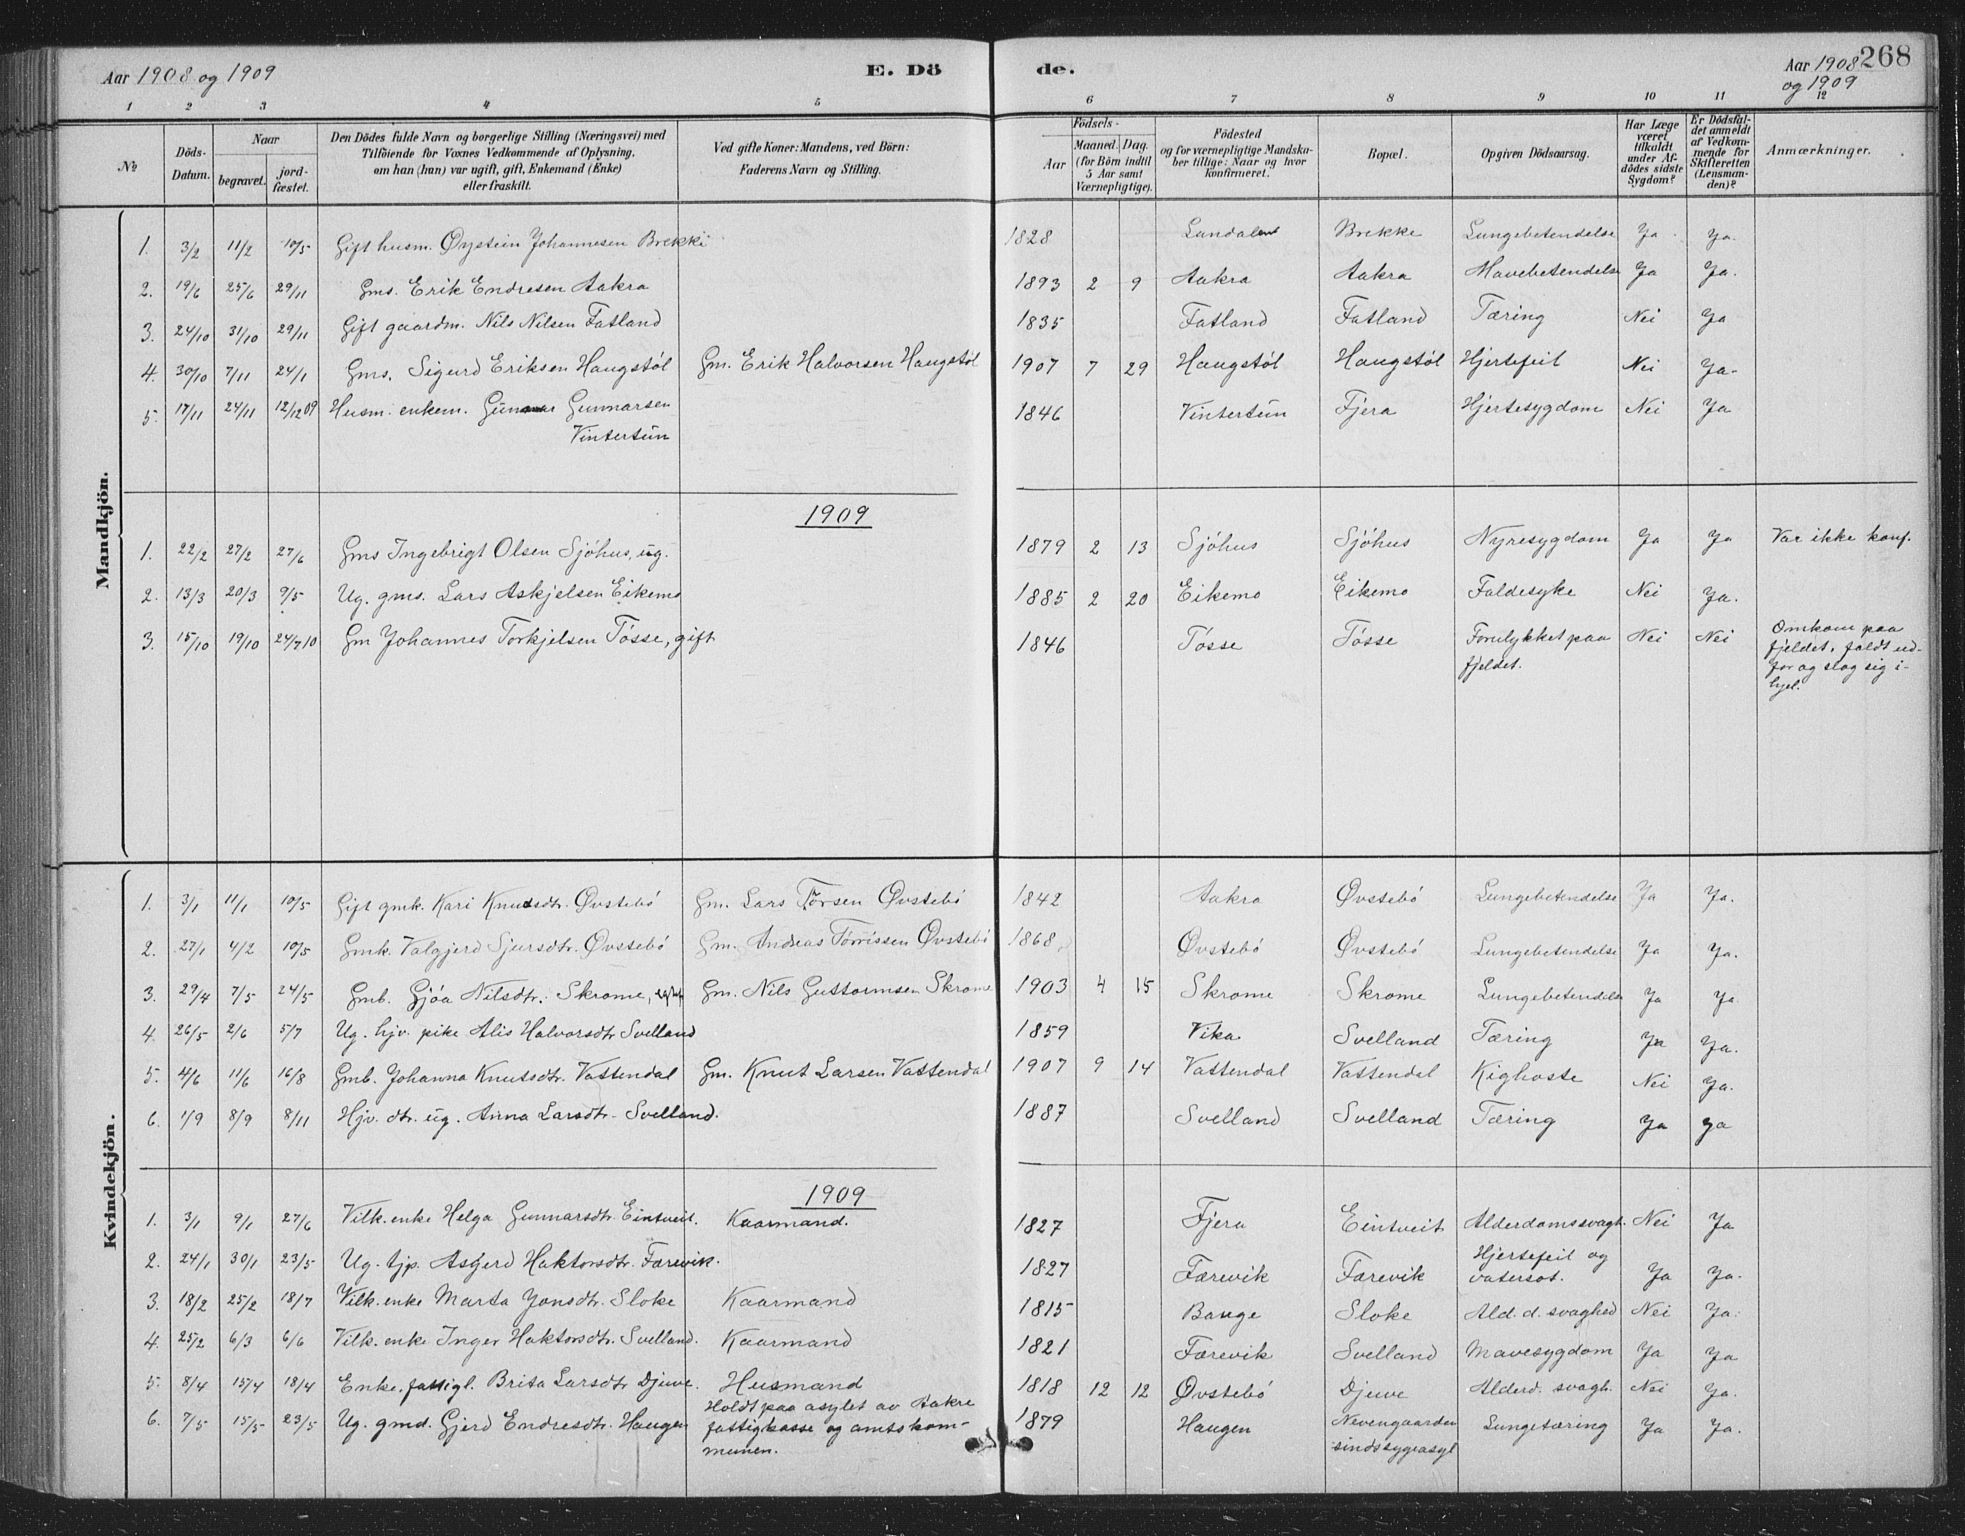 Aar 1908 og 1909
E. Dö
de.
Aar 1908 og 1909
268
1 2 3 4 5 6 7 8 9 10 11 12
No
Döds-Datum.
Naar
begravet.
jord-fæstet.
Den Dödes fulde Navn og borgerlige Stilling (Næringsvei) med
Tilföiende for Voxnes Vedkommende af Oplysning,
om han (hun) var ugift, gift, Enkemand (Enke)
eller fraskilt.
Ved gifte Koner: Mandens, ved Börn:
Faderens Navn og Stilling.
Födsels-
Aar
Maaned. Dag.
(for Börn indtil
5 Aar samt
Værnepligtige).
Födested
og for værnepligtige Mandska-
ber tillige: Naar og hvor
konfirmeret.
Bopæl.
Opgiven Dödsaarsag.
Har Læge
været
tilkaldt
under Af-
dödes sidste
Sygdom?
Er Dödsfal-
det anmeldt
af Vedkom-
mende for
Skifteretten
(Lensman-
den)?
Anmærkninger.
Mandkjön.
1. 3/2 11/2 10/5 Gift husm. Øystein Johannesen Brekki 1828 Brekke Lungebetendelse Ja Ja.
2. 19/6 25/6 29/11 Gms. Erik Endresen Aakra 1893 2 9 Aakra Aakra Mavebetendelse Ja Ja.
3. 24/10 31/10 29/11 Gift gaardm. Nils Nilsen Fatland 1835 Fatland Fatland Tæring Nei Ja
4. 30/10 7/11 24/1 Gms. Sigurd Eriksen Haugstøl Gm. Erik Halvorsen Haugstøl 1907 7 29 Haugstøl Haugstøl Hjertefeil Nei Ja-
5. 17/11 24/11 12/12 09 Husm. enkem. Gunnar Gunnarsen 1846 Vintertun Fjera Hjertesygdom Nei Ja
Vintertun
1909
1. 22/2 27/2 27/6 Gms Ingebrigt Olsen Sjöhus, ug. 1879 2 13 Sjöhus Sjöhus Nyresygdom Ja Ja Var ikke konf.
2. 13/3 20/3 9/5 Ug. gms. Lars Askjelsen Eikemo 1885 2 20 Eikemo Eikemo Faldesyke Nei Ja.
3. 15/10 19/10 24/7 10 Gm Johannes Torkjelsen Tösse, gift 1846 Tösse Tösse Forulykket paa fjeldet. Nei Nei Omkom paa
fjeldet, faldt ud-
for og slog sig i-
hjel.
Kvindekjön.
1. 3/1 11/1 10/5 Gift gmk. Kari Knudsdtr. Øvstebö Gm. Lars Torsen Øvstebö 1842 Aakra Øvstebö Lungebetendelse Ja Ja.
2. 27/1 4/2 10/5 Gmk. Valgjerd Sjursdtr. Øvstebö Gm. Andreas Törrissen Øvstebö 1868 Øvstebö Øvstebö Lungebetendelse Ja Ja.
3. 29/4 7/5 24/5 Gmb. Gjöa Nilsdtr. Skrome, Gm. Nils Guttormsen Skrome 1903 4 15 Skrome Skrome Lungebetendelse Ja Ja
4. 26/5 2/6 5/7 Ug. hjv. pike Alis Halvorsdtr Svelland 1859 Vika Svelland Tæring Ja Ja.
5. 4/6 11/6 16/8 Gmb. Johanna Knutsdtr. Vattendal Gm. Knut Larsen Vattendal 1907 9 14 Vattendal Vattendal Kighoste Nei Ja.
6. 1/9 8/9 8/11 Hjv. dtr. ug. Anna Larsdtr. Svelland. 1887 Svelland Svelland Tæring Ja Ja
1909
1. 3/1 9/1 27/6 Vilk. enke Helga Gunnarsdtr. Eintveit. Kaarmand. 1827 Fjera Eintveit Alderdomssvagh. Nei Ja
2. 24/1 30/1 23/5 Ug. tjp. Asgerd Haktorsdtr. Færevik. 1827 Færevik Færevik Hjertefeil og vatersot. Ja Ja.
3. 18/2 25/2 18/7 Vilk. enke Marta Jonsdtr. Sloke Kaarmand 1815 Bauge Sloke Ald. d. svaghed Nei Ja.
4. 25/2 6/3 6/6 Vilk. enke Inger Haktorsdtr. Svelland. Kaarmand 1821 Færevik Svelland Mavesygdom Ja Ja
5. 8/4 15/4 18/4 Enke, fattigl. Brita Larsdtr Djuve. Husmand 1818 12 12 Øvstebö Djuve Alderd. svagh. Nei Ja.
6. 7/5 15/5 23/5 Ug. gmd. Gjerd Endresdtr. Haugen Holdt paa asylet av Aakre
fattigkasse og amtskom-
munen. 1879 Haugen Nevengaarden
sindssygeasyl Lungetæring Ja Ja.